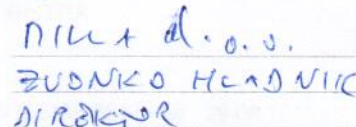 MILLA d.o.o.
ZVONKO HLADNIK
DIREKTOR